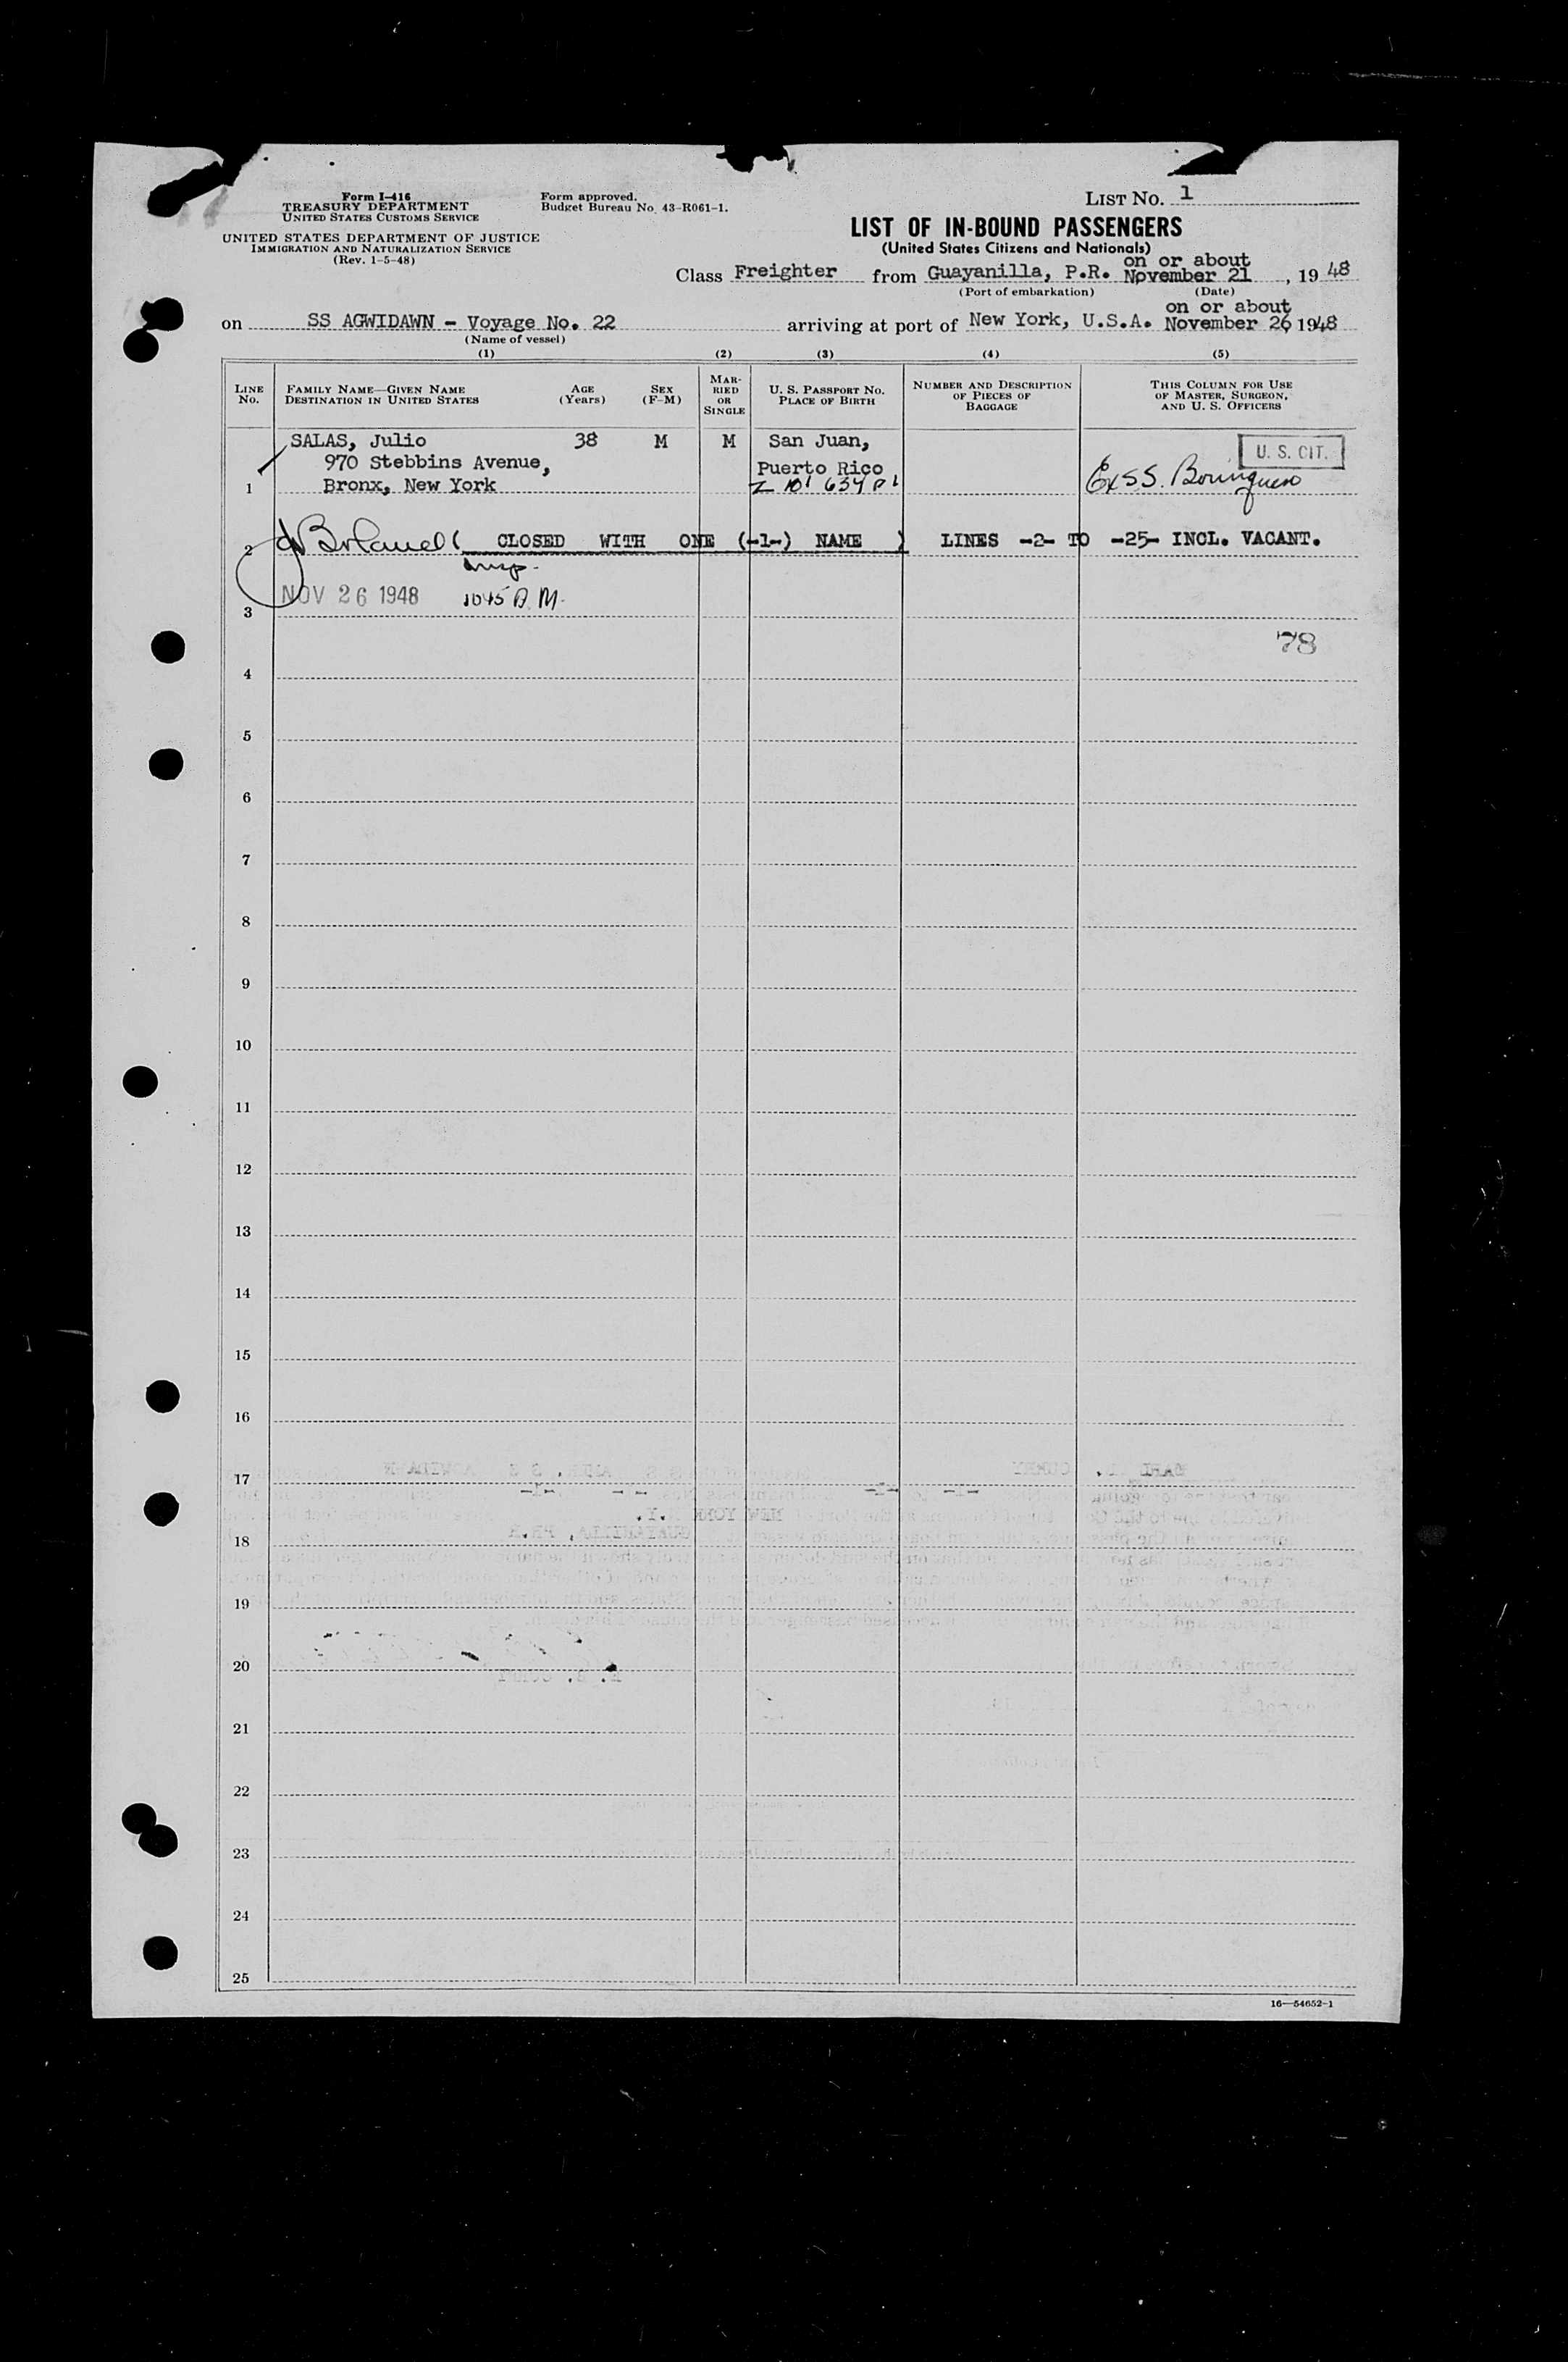 Form I-416
TREASURY DEPARTMENT
UNITED STATES CUSTOMS SERVICE
UNITED STATES DEPARTMENT OF JUSTICE
IMMIGRATION AND NATURALIZATION SERVICE
(Rev. 1-5-48)
Form approved.
Budget Bureau No. 43-R061-1.
LIST No. 1
LIST OF IN-BOUND PASSENGERS
(United States Citizens and Nationals)
on or about
Class Freighter from Guayanilla, P.R. November 21, 1948
(Port of embarkation) (Date)
on or about
on SS AGWIDAWN - Voyage No. 22 arriving at port of New York, U.S.A. November 26 1948
(Name of vessel)
(1) (2) (3) (4) (5)
LINE No.
FAMILY NAME—GIVEN NAME
DESTINATION IN UNITED STATES
AGE (Years)
SEX (F-M)
MARRIED OR SINGLE
U. S. PASSPORT No.
PLACE OF BIRTH
NUMBER AND DESCRIPTION OF PIECES OF BAGGAGE
THIS COLUMN FOR USE OF MASTER, SURGEON, AND U. S. OFFICERS
SALAS, Julio 38 M M San Juan,
U. S. CIT.
970 Stebbins Avenue, Puerto Rico
1 Bronx, New York
Ex S.S.
2 ( CLOSED WITH ONE (-1-) NAME ) LINES -2- TO -25- INCL. VACANT.
Insp.
NOV 26 1948 1045 A.M.
3
78
4
5
6
7
8
9
10
11
12
13
14
15
16
17
18
19
20
21
22
23
24
25
16—54652-1